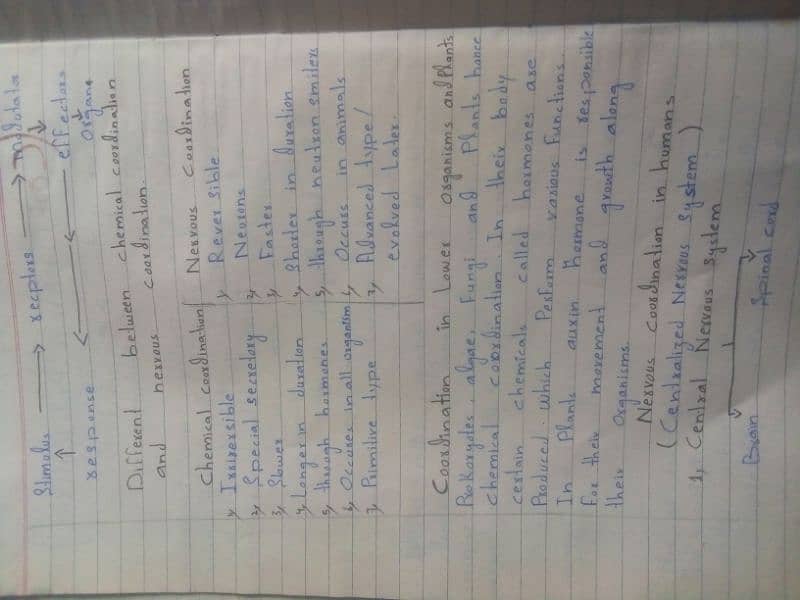 Stimulus → recptors → modulata
↑ ↓
response ← ← effectors
organe
Different between chemical coordination
and nervous coordination.
Chemical coordination | Nervous Coordination
1, Irriversible | 1, Rever sible
2, Special secretory | 2, Neurons
3, Slower | 3, Faster
4, Longer in duration | 4, Shorter in duration
5, through hormones | 5, through neutron smiler
6, Occures in all organism | 6, Occurs in animals
7, Primitive type | 7, Advanced type/
evolved Later.
Coordination in Lower organisms and Plants
Prokoryotes, algae, Fungi and Plants hance
chemical coordination. In their body
certain chemicals called hormones are
Produced. which Perform various Functions.
In Plants auxin hormone is responsible
For their movement and growth along
their organisms.
Nervous coordination in humans
(Centralized Nervous System)
1, Central Nervous System
Brain Spinal cord